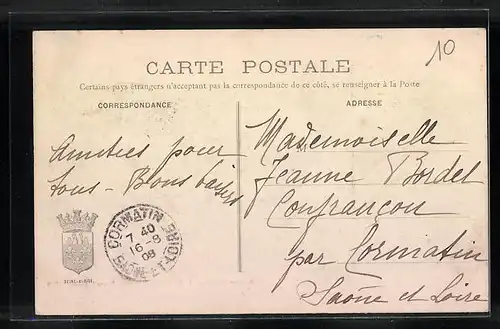 10
CARTE POSTALE
Certains pays étrangers n'acceptant pas la correspondance de ce côté, se renseigner à la Poste
CORRESPONDANCE
ADRESSE
Amitiés pour
tous - Bons baisers
Mademoiselle
Jeanne Bordet
Confrançon
par Cormatin
Saône et Loire
CORMATIN
SAONE-ET-LOIRE
7 40
16-8
08